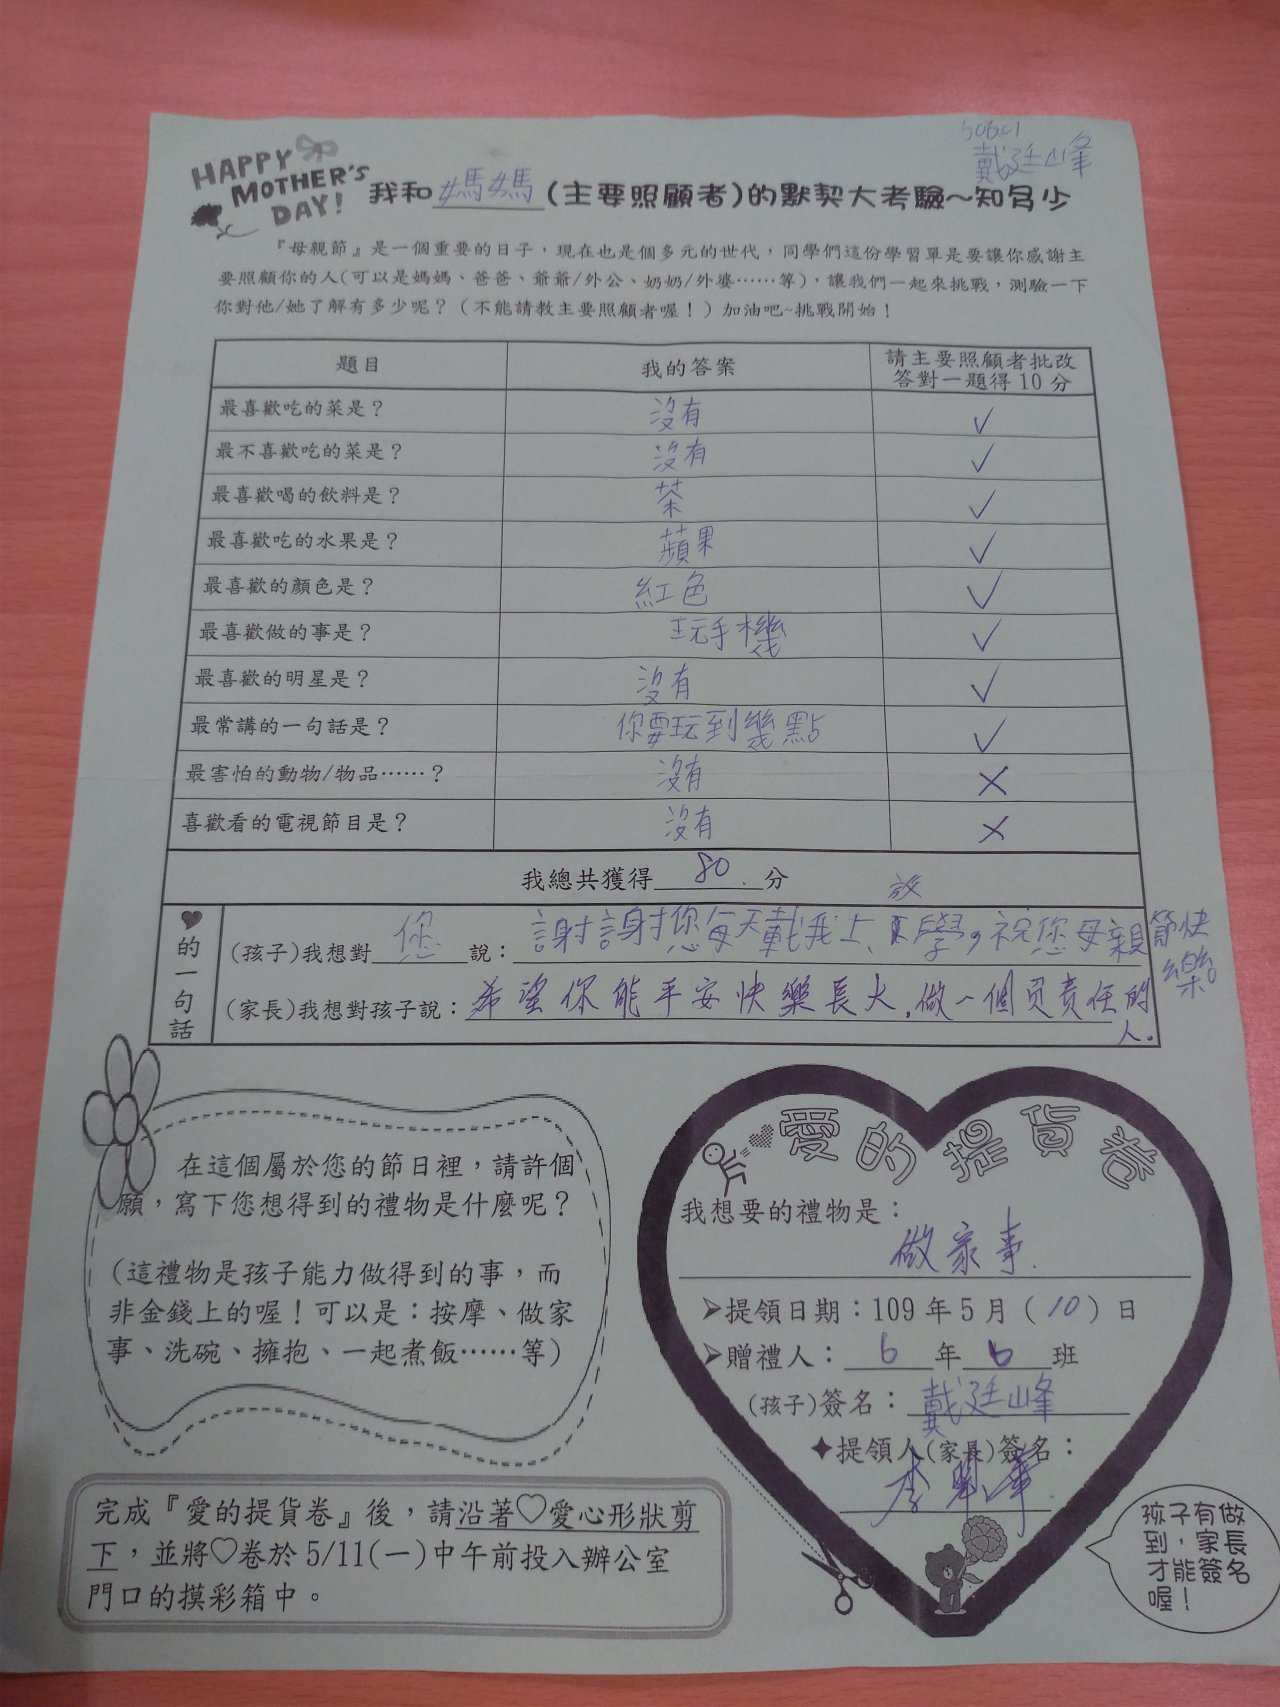 60601
戴廷峰
HAPPY
MOTHER'S
DAY!
我和媽媽(主要照顧者)的默契大考驗~知多少
『母親節』是一個重要的日子，現在也是個多元的世代，同學們這份學習單是要讓你感謝主
要照顧你的人(可以是媽媽、爸爸、爺爺/外公、奶奶/外婆……等)，讓我們一起來挑戰，測驗一下
你對他/她了解有多少呢？（不能請教主要照顧者喔！）加油吧~挑戰開始！
題目 我的答案 請主要照顧者批改
答對一題得10分
最喜歡吃的菜是？ 沒有 ✓
最不喜歡吃的菜是？ 沒有 ✓
最喜歡喝的飲料是？ 茶 ✓
最喜歡吃的水果是？ 蘋果 ✓
最喜歡的顏色是？ 紅色 ✓
最喜歡做的事是？ 玩手機 ✓
最喜歡的明星是？ 沒有 ✓
最常講的一句話是？ 你要玩到幾點 ✓
最害怕的動物/物品……？ 沒有 ✗
喜歡看的電視節目是？ 沒有 ✗
我總共獲得 80. 分
♥的一句話
放
(孩子)我想對 您 說：謝謝您每天戴我上、學，祝您母親節快
樂
(家長)我想對孩子說：希望你能平安快樂長大，做一個負責任的
人。
在這個屬於您的節日裡，請許個
願，寫下您想得到的禮物是什麼呢？
(這禮物是孩子能力做得到的事，而
非金錢上的喔！可以是：按摩、做家
事、洗碗、擁抱、一起煮飯……等)
完成『愛的提貨卷』後，請沿著♡愛心形狀剪
下，並將♡卷於 5/11(一)中午前投入辦公室
門口的摸彩箱中。
愛的提貨卷
我想要的禮物是：
做家事.
➤提領日期：109 年 5 月（10）日
➤贈禮人： 6 年 6 班
(孩子)簽名： 戴廷峰
✦提領人(家長)簽名：
李
孩子有做
到，家長
才能簽名
喔！